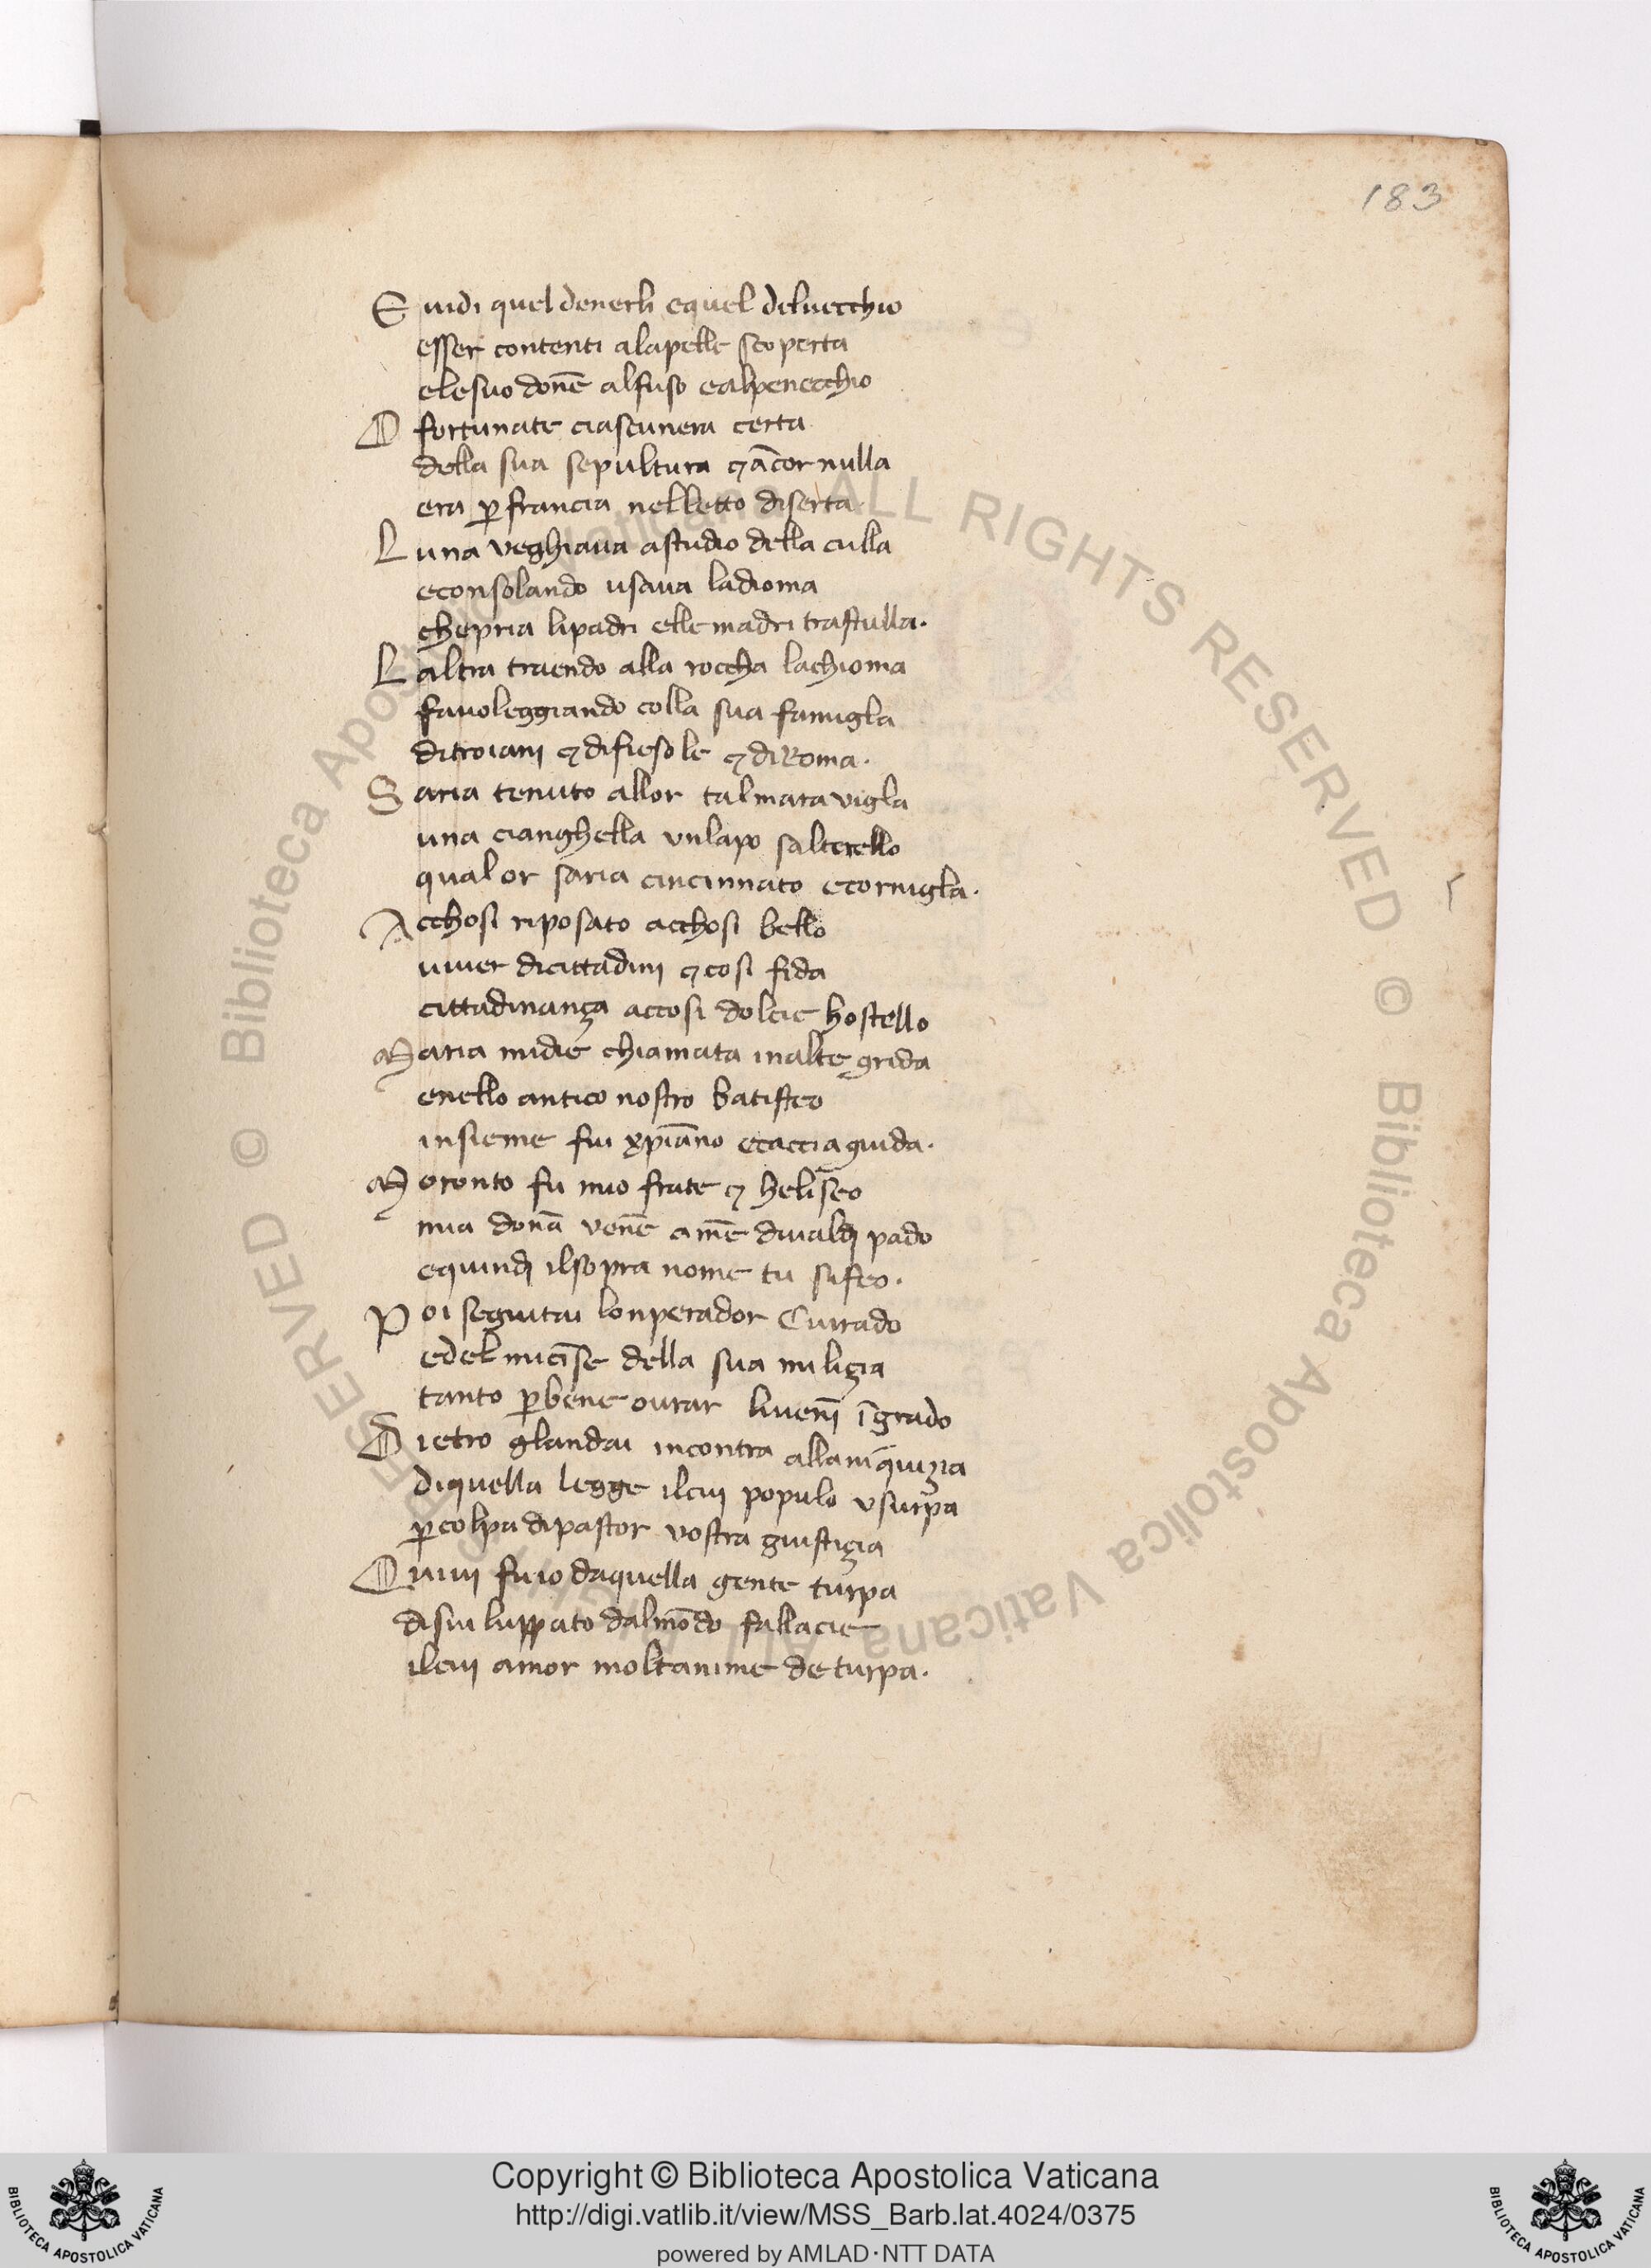 183
E uidi quel denerli equel deluecchio
esser contenti alapelle scoperta
elesuo donē alfuso ealpenecchio
O fortunate ciascunera certa
della sua sepultura ⁊ ācor nulla
era ꝑ francia nelletto diserta
Luna veghiaua astudio della culla
econsolando usaua ladioma
chepria lipadri elle madri trastulla.
Laltra traendo alla roccha lachioma
fauoleggiando colla sua famigla
ditroiani ⁊ difiesole ⁊ diRoma.
Saria tenuto allor talmarauigla
una cianghella vnlapo salterello
qualor saria cincinnato ecornigla.
Acchosi riposato acchosi bello
uiuer dicittadini ⁊ cosi fida
cittadinança accosi dolcie hostello
Maria midiè chiamata inalte grida
enello antico nostro batisteo
insieme fui xp̄iāno ecacciaguida.
Moronto fu mio frate ⁊ heliseo
mia donā venē amē diualdi pado
equindi ilsopra nome tu sifeo.
Poi seguitai lonperador Currado
edel micīse della sua miliçia
tanto ꝑbene ourar liuenī īgrado
Dietro glandai incontra allaniquizia
diquella legge ilcui populo vsurpa
ꝑcolpa dipastor vostra giustiçia
Quiui fuio daquella gente turpa
disuiluppato dalmōdo fallacie
ilcui amor moltanime deturpa.
Copyright © Biblioteca Apostolica Vaticana
http://digi.vatlib.it/view/MSS_Barb.lat.4024/0375
powered by AMLAD·NTT DATA
BIBLIOTECA APOSTOLICA VATICANA
BIBLIOTECA APOSTOLICA VATICANA
© Biblioteca Apostolica Vaticana ALL RIGHTS RESERVED © Biblioteca Apostolica Vaticana ALL RIGHTS RESERVED